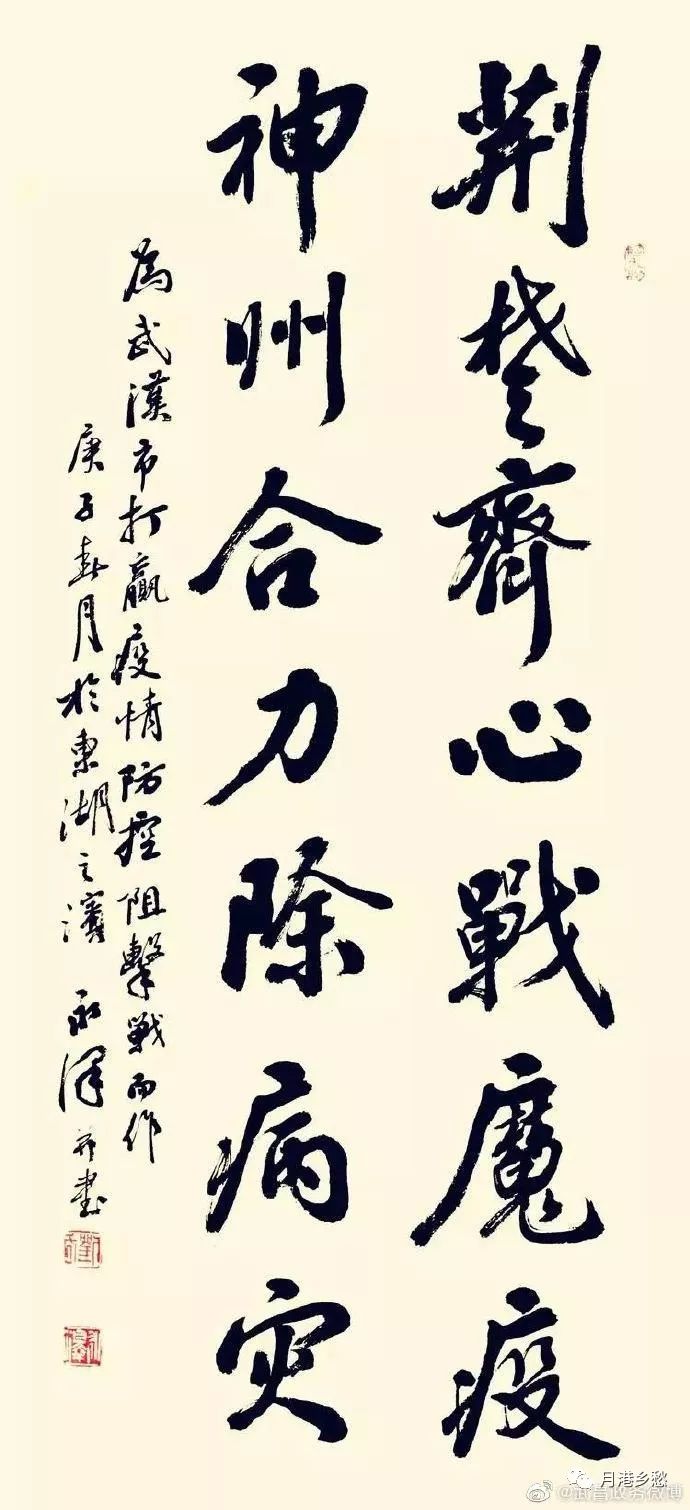 荆楚齊心戰魔疫
神州合力除病灾
為武漢市打贏疫情防控阻擊戰而作
庚子春月於東湖之濱 永澤并書
月港乡愁
@武昌政务微博